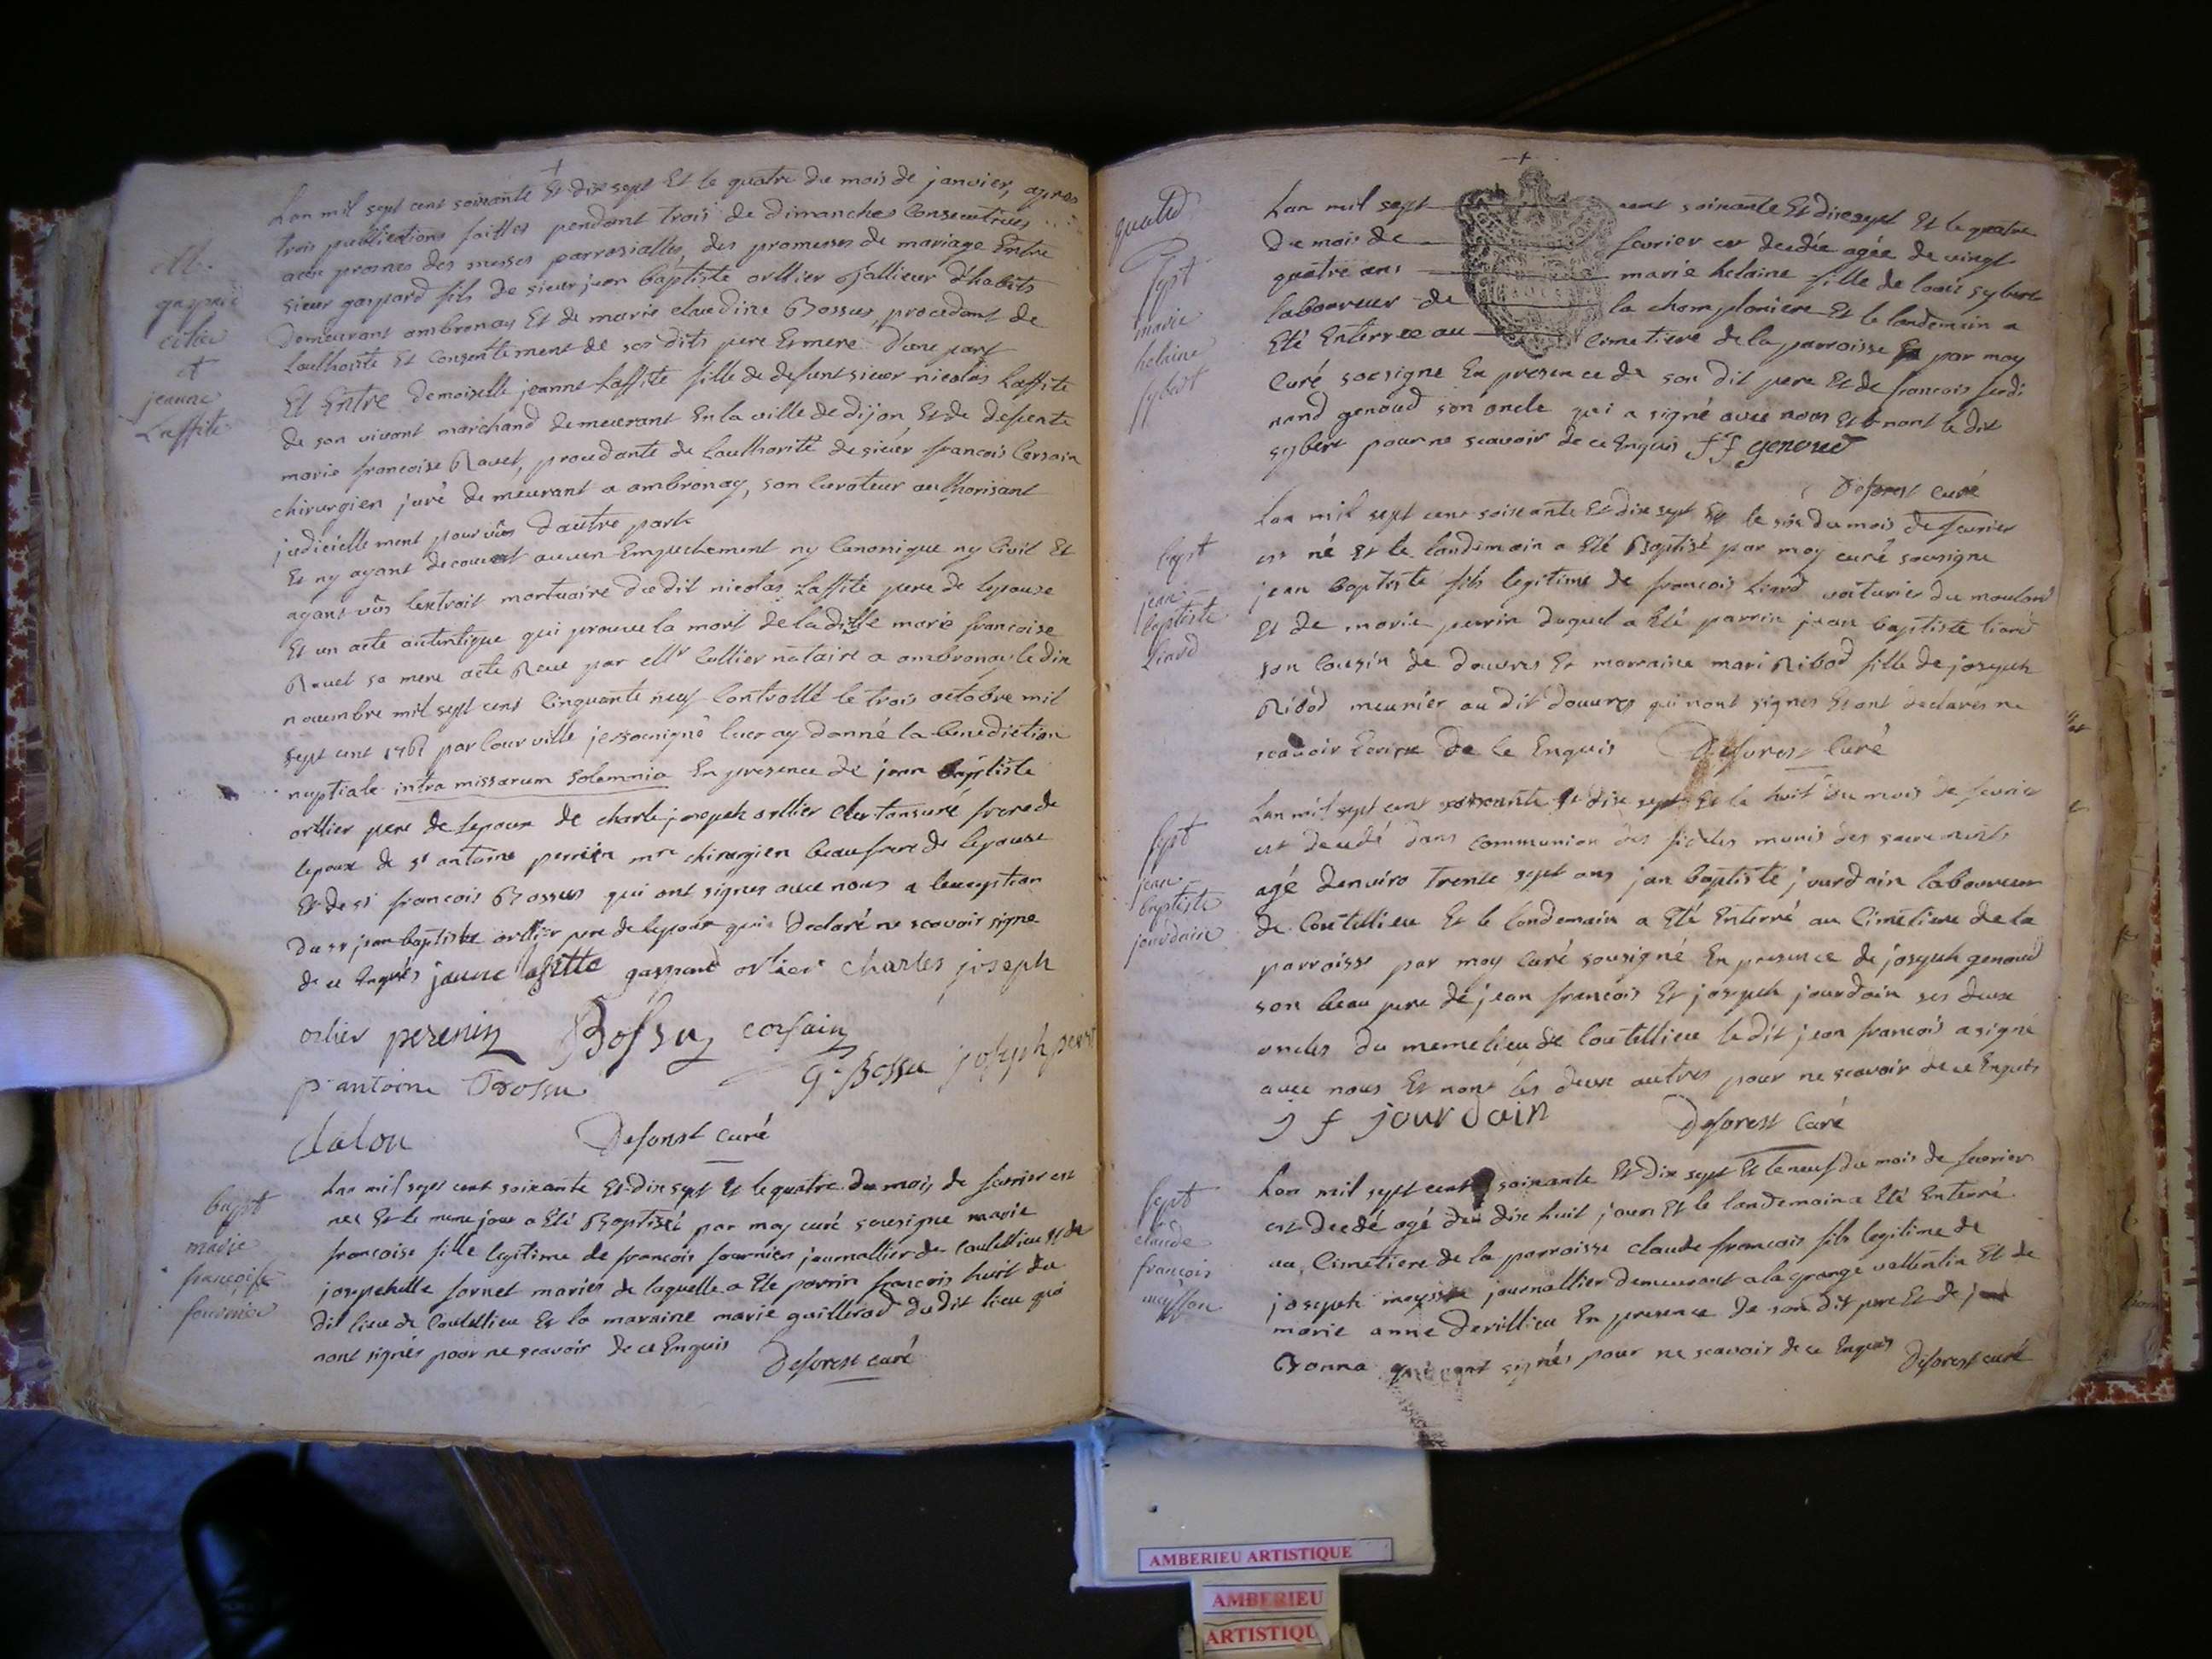 Lan mil sept cent soixante Et dix sept Et le quatre du mois de janvier, apres
trois publications faittes pendant trois de dimanches Consecutives
aux prosnes des messes parrosialles, des promesses de mariage Entre
sieur gaspard fils de sieur jean baptiste orllier tallieur d'habits
Demeurant ambronay Et de marie claudine Bossus, procedant de
Lauthorité Et Consentement de ses dits pere Et mere D'une part
Et Entre Demoiselle jeanne Laffite fille de defunt sieur nicolas Laffite
de son vivant marchand demeurant En la ville de dijon, Et de defunte
marie francoise Ravet, procedante de Lauthorité de sieur francois Corsain
chirurgien juré demeurant a ambronay, son Curateur authorisant
judiciellement pour vûs D'autre part
Et ny ayant decouvert aucun Empechement ny Canonique ny Civil Et
ayant vûs lextrait mortuaire du dit nicolas Laffite pere de lepouse
Et un acte autentique qui prouve la mort de la ditte marie francoise
Ravet sa mere acte Receu par Mr Collier notaire a ambronay le dix
novembre mil sept cent Cinquante neuf Controllé le trois octobre mil
sept cent 1761 par Courville je soussigné Curé ay donné la benediction
nuptiale intra missarum solemnia En presence de jean baptiste
orllier pere de lepoux de charle joseph orllier Cler tonsuré frere de
lepoux de sr antoine perrein mre chirurgien beaufrere de lepouse
Et de sr francois Bossus qui ont signes avec nous a lexception
Du sr jean baptiste orllier pere de lepoux qui a Declaré ne scavoir signe
de ce Enquis jeanne lafitte gaspard orlier charles joseph
orlier perenin Bossu corsain
p antoine Bossu G. Bossu joseph
clalou Deforest curé
Lan mil sept cent soixante Et dix sept Et le quatre du mois de fevrier est
nee Et le meme jour a Eté Baptisée par moy curé sousigne marie
francoise fille legitime de francois fournier journallier de Coutellieu Et de
josephette fornet mariés de laquelle a Ete parrin francois huit du
dit lieu de Coutellieu Et la maraine marie guillerad du dit lieu qui
nont signés pour ne scavoir de ce Enquis Deforest curé
M.
gaspard
jeanne
Laffite
bapt
marie
françoise
fournier
Lan mil sept cent soixante Et dix sept Et le quatre
Du mois de fevrier est decedée agée de vingt
quatre ans marie helaine fille de loüis sybert
laboureur de la champlaniere Et le landemain a
Eté Enterree au Cimetiere de la parroisse par moy
Curé sousigne En presence de son dit pere Et de francois ferdi
nand genoud son oncle qui a signé avec nous Et nont le dit
sybert pour ne scavoir de ce Enquis f f genoud
Deforest curé
Lan mil sept cent soixante Et dix sept Et le six du mois de fevrier
est né Et le landemain a Eté Baptisé par moy curé sousigne
jean baptiste fils legitime de francois Liard voiturier du moulard
Et de marie perrin duquel a Eté parrin jean baptiste liard
son Cousin de douvres Et marraine mari Ribod fille de joseph
Ribod meunier au dit douvres qui nont signes Et ont declarés ne
scavoir Ecrire de Ce Enquis Deforest Curé
Lan mil sept cent soixante Et dix sept Et le huit du mois de fevrier
est decedé dans communion des fideles munis des sacrements
agé denviro trente sept ans jan baptiste jourdain laboureur
de Coutellieu Et le landemain a Eté Enterré au Cimetiere de la
parroisse par moy Curé sousigné En presence de joseph genoud
son beau pere de jean francois Et joseph jourdain ses deux
oncles du meme lieu de Coutellieu le dit jean francois a signé
avec nous Et nont les deux autres pour ne scavoir de ce Enquis
j f jourdain Deforest Curé
Lan mil sept cent soixante Et dix sept Et le neuf du mois de fevrier
est decedé agé de dix huit jours Et le landemain a Eté Enterré
au Cimetiere de la parroisse claude francois fils legitime de
joseph journallier demeurant a la grange vallentin Et de
marie anne Derillieu En presence de son dit pere Et de
Bonna qui nont signés pour ne scavoir de ce Enquis Deforest curé
sept
marie
helaine
sybert
bapt
jean
baptiste
Liard
sept
jean
baptiste
jourdain
sept
claude
françois
AMBERIEU ARTISTIQUE
AMBERIEU
ARTISTIQU